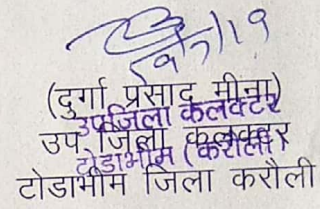 (दुर्गा प्रसाद मीना)
उपजिला कलेक्टर
उप जिला कलक्टर
टोडाभीम (करौली)
टोडाभीम जिला करौली